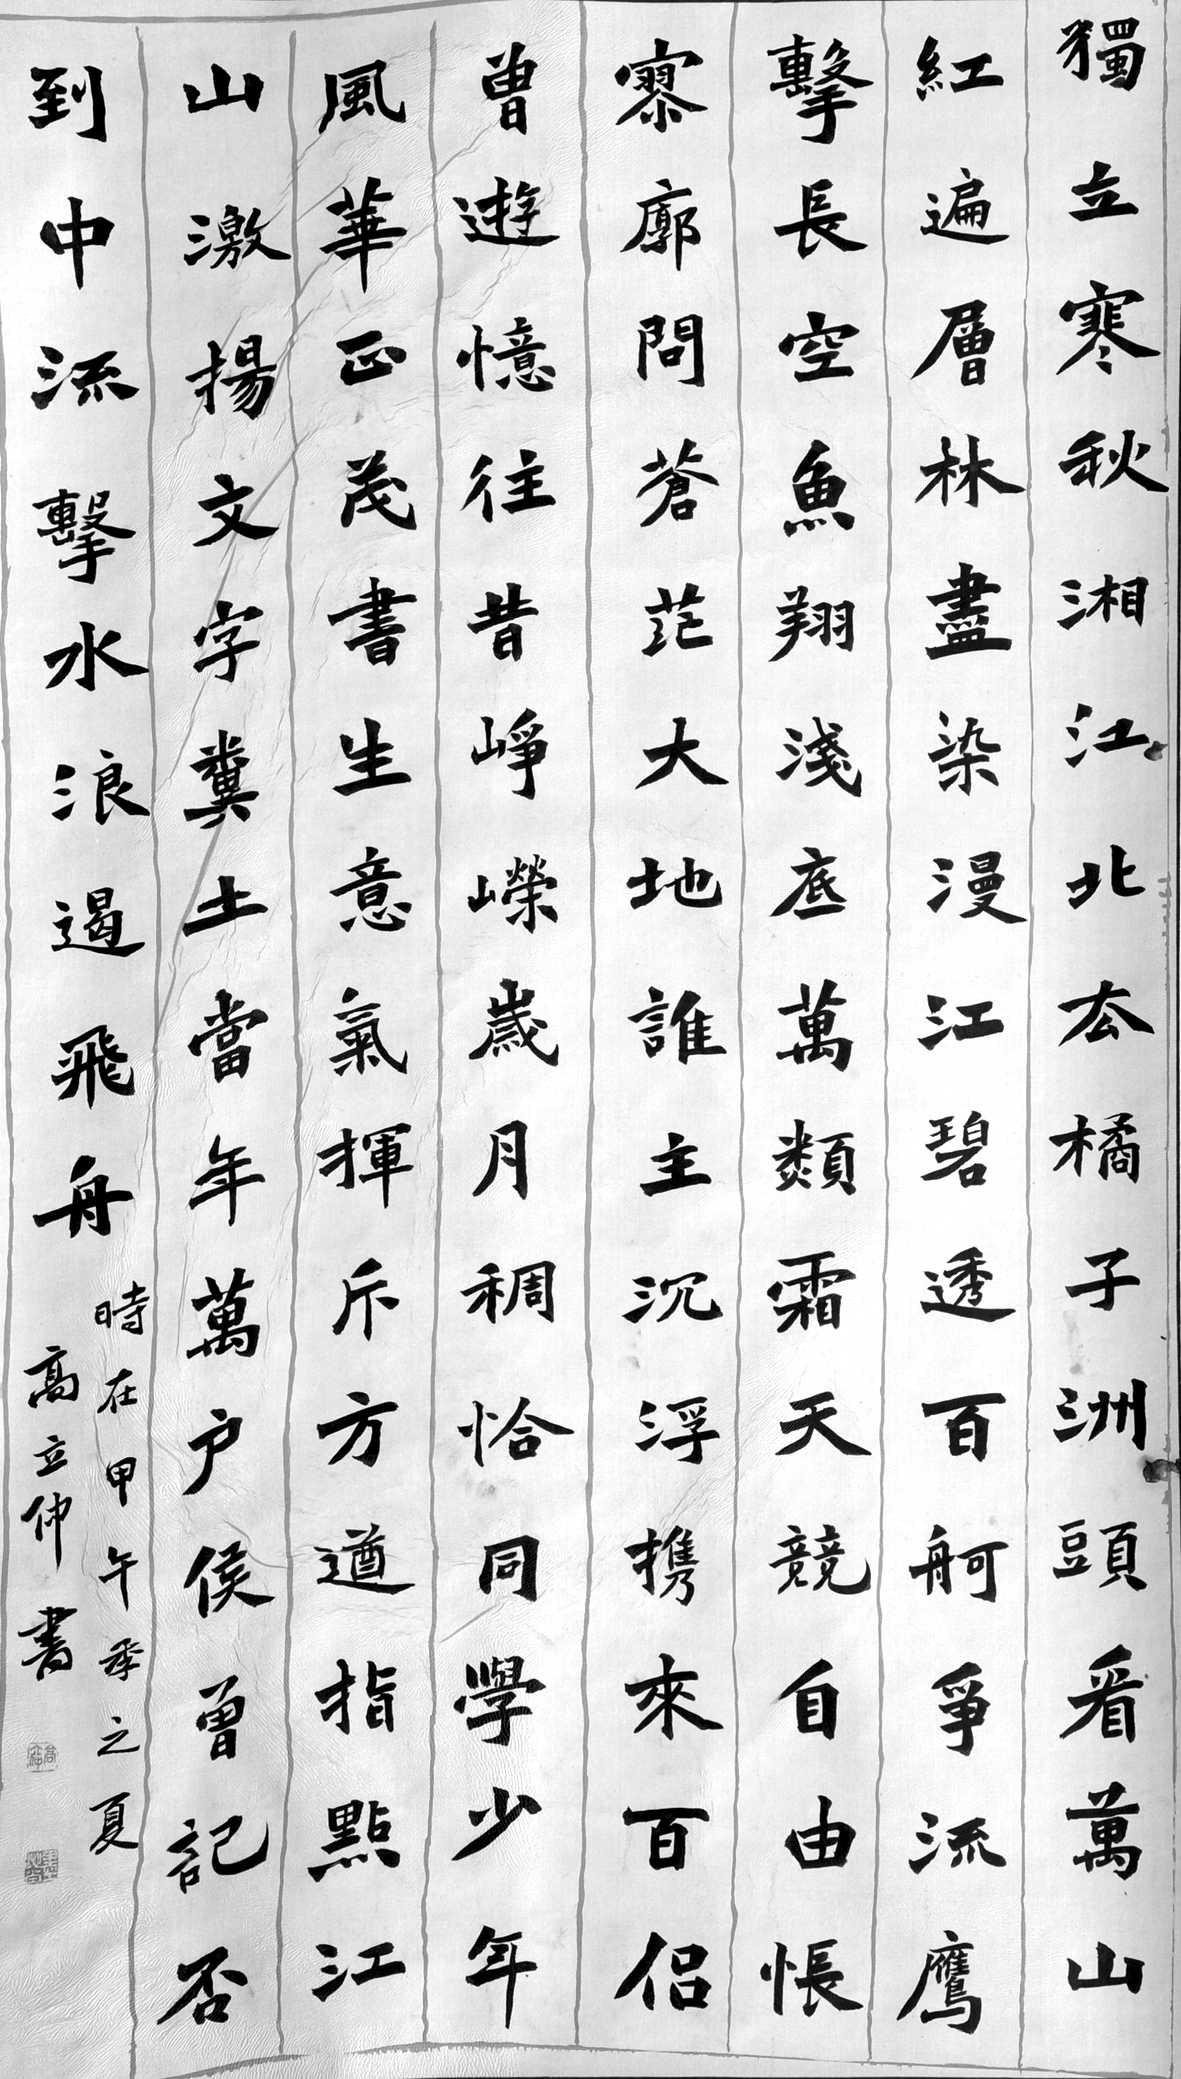 獨立寒秋湘江北去橘子洲頭看萬山
紅遍層林盡染漫江碧透百舸爭流鷹
擊長空魚翔淺底萬類霜天競自由悵
寥廓問蒼茫大地誰主沉浮携來百侣
曾遊憶往昔崢嶸歲月稠恰同學少年
風華正茂書生意氣揮斥方遒指點江
山激揚文字糞土當年萬户侯曾記否
到中流擊水浪遏飛舟
時在甲午季之夏
高立仲書